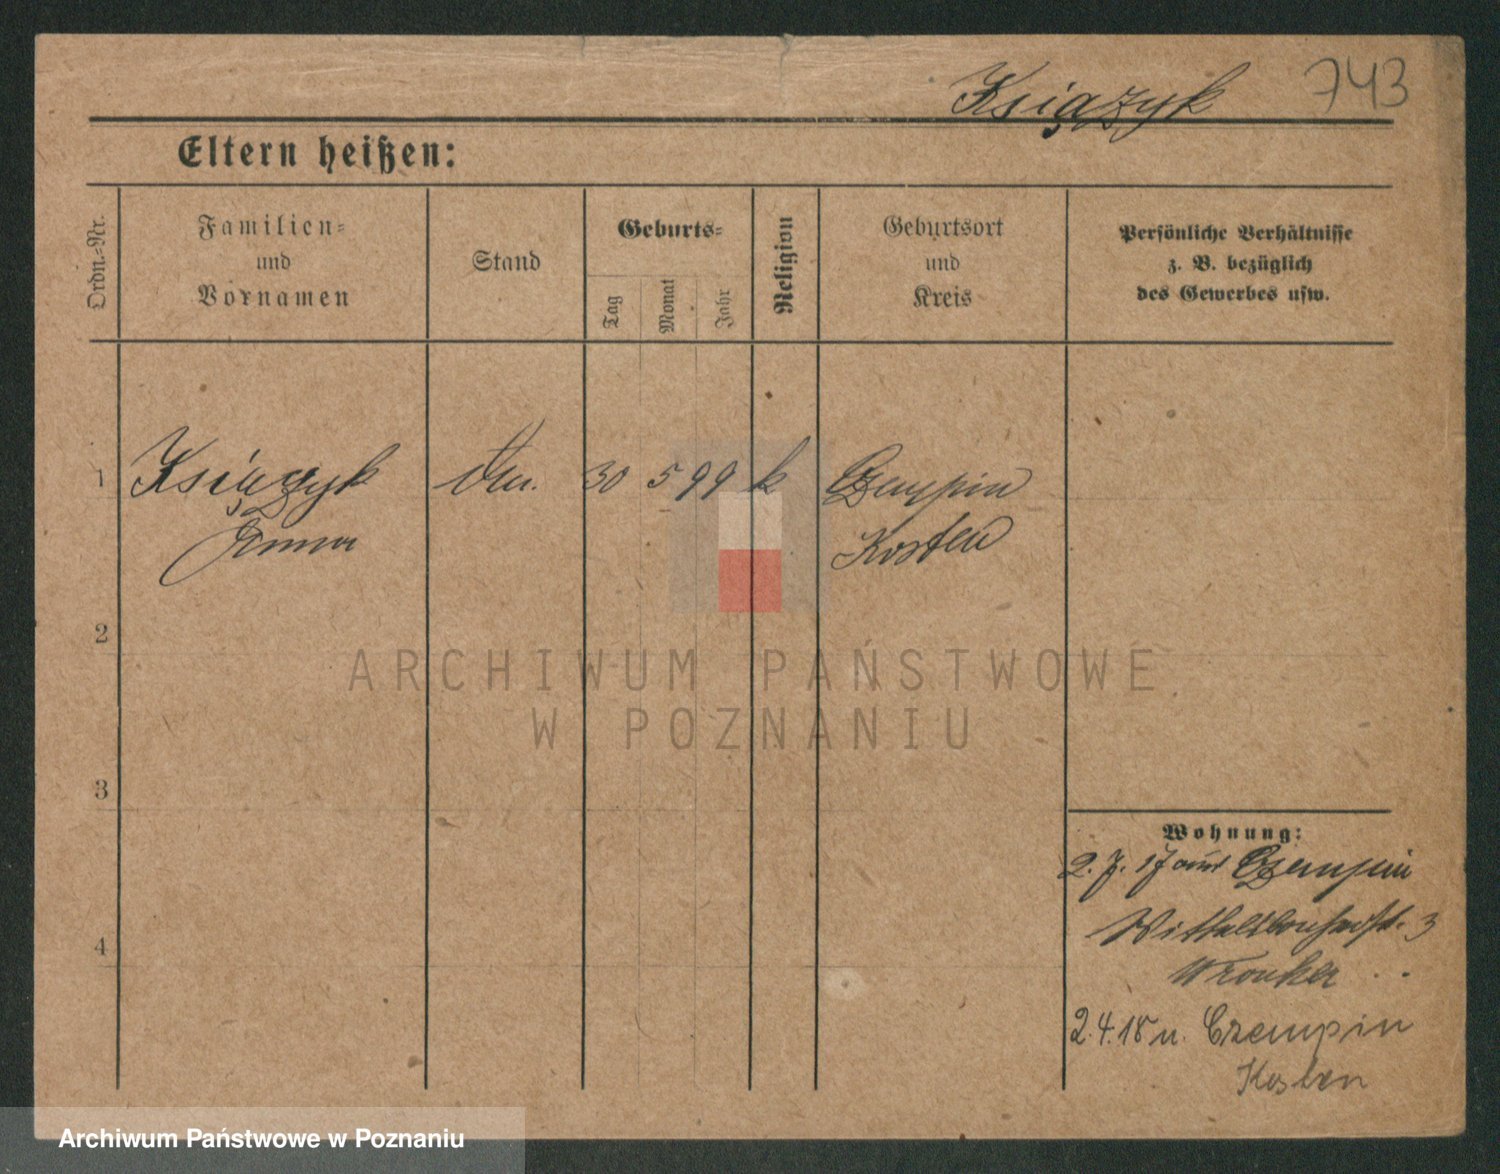 Książyk 743
Eltern heißen:
Ordn.=Nr.
Familien=
und
Vornamen
Stand
Geburts=
Tag
Monat
Jahr
Religion
Geburtsort
und
Kreis
Persönliche Verhältnisse
z. B. bezüglich
des Gewerbes usw.
1 Książyk 30 5 99 k Czempin
Anna Kosten
2
3
4
Wohnung:
2. 7. 17 aus Czempin
3
Wronker
2.4.18 n. Czempin
Kosten
ARCHIWUM PAŃSTWOWE
W POZNANIU
Archiwum Państwowe w Poznaniu